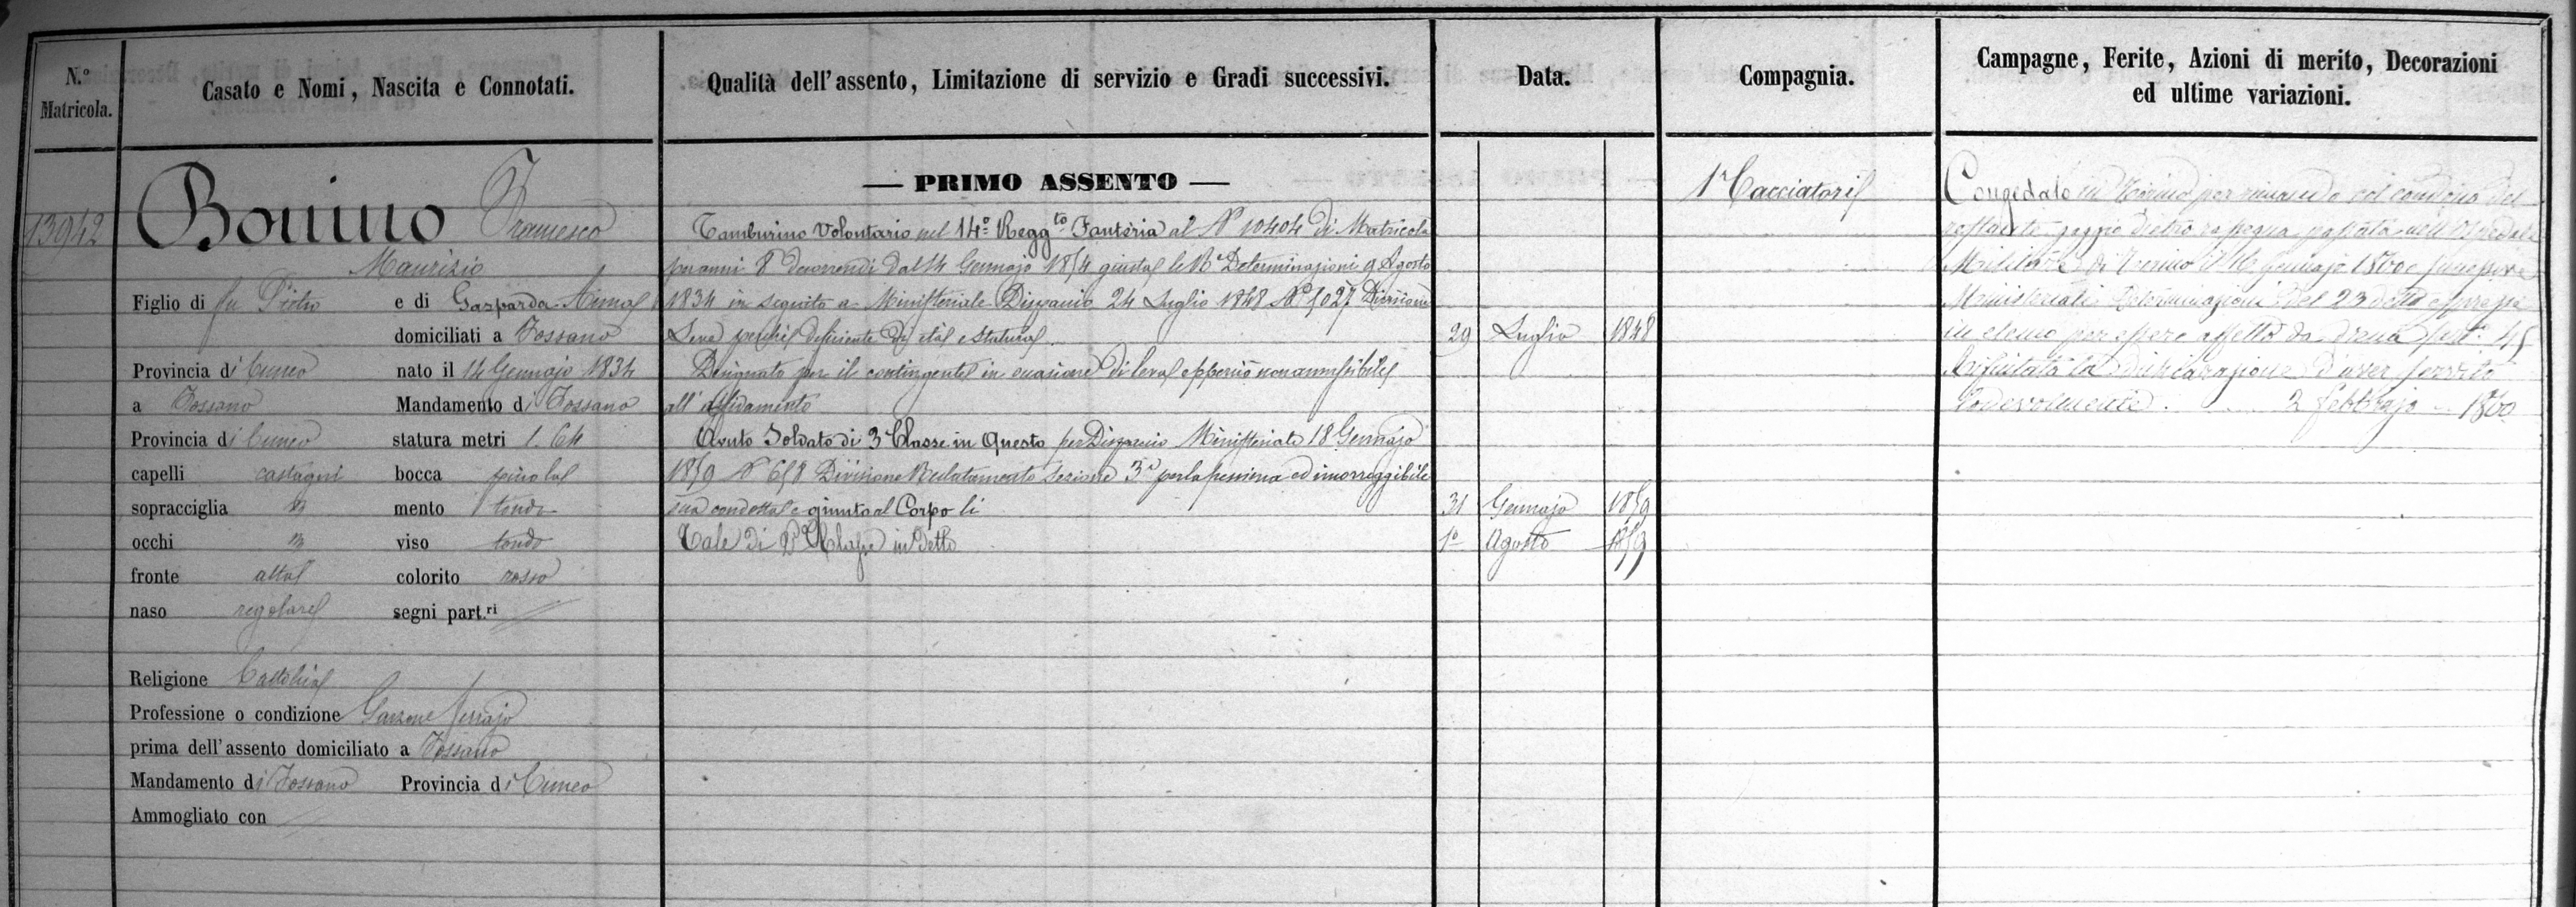 N.º Matricola.
Casato e Nomi, Nascita e Connotati.
Qualità dell'assento, Limitazione di servizio e Gradi successivi.
Data.
Compagnia.
Campagne, Ferite, Azioni di merito, Decorazioni
ed ultime variazioni.
13942
Bonino Francesco
Maurizio
Figlio di fu Pietro e di Gasparda
domiciliati a Fossano
Provincia di Cuneo nato il 14 Gennajo 1834
a Fossano Mandamento di Fossano
Provincia di Cuneo statura metri 1.64
capelli castagni bocca piccola
sopracciglia mento tondo
occhi viso tondo
fronte alta colorito rosso
naso regolare segni part.ri
Religione Cattolica
Professione o condizione Garzone ferrajo
prima dell'assento domiciliato a Fossano
Mandamento di Fossano Provincia di Cuneo
Ammogliato con
— PRIMO ASSENTO —
Tamburino Volontario nel 14º Reggto Fanteria al Nº 10404 di Matricola
per anni 8 decorrendi dal 14 Gennajo 1854 giusta le Rº Determinazioni 9 Agosto
1834 in seguito a Ministeriale Dispaccio 24 Luglio 1848 Nº 1027 Divisione
Leva perchè deficiente di età e statura. 29 Luglio 1848
Designato per il contingente in occasione di leva epperciò non ammissibile
all'affidamento
Avuto Soldato di 3 Classe in Questo per Dispaccio Ministeriale 18 Gennajo
1859 Nº 658 Divisione Reclutamento Sezione 3ª per la pessima ed incorreggibile
sua condotta e giunto al Corpo li 31 Gennajo 1859
Tale di Classe in detto 1º Agosto 1859
1ª Cacciatori
Congedato in Torino per rimando col condono del
restante ingaggio dietro rassegna passata nell'Ospedale
Militare di Torino il 16 Gennajo 1860 e
Ministeriali Determinazioni del 23 detto
in elenco per essere affetto da 45
Rifiutata la dichiarazione d'aver servito
lodevolmente. 2 febbrajo 1860